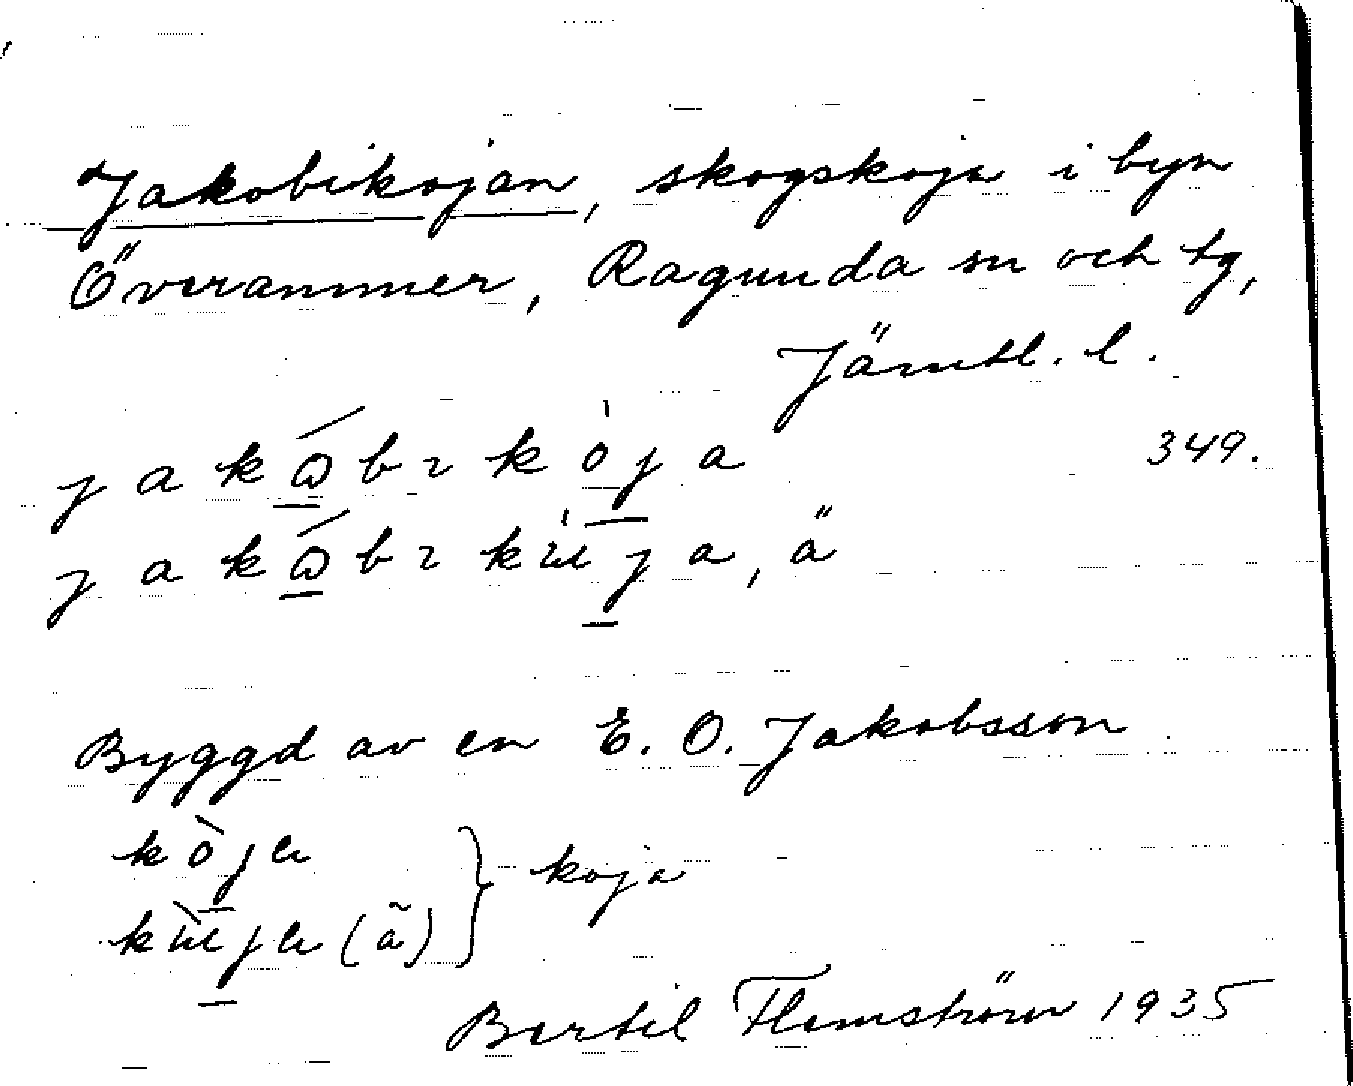 Jakobikojan, skogskoja i byn
Överammer, Ragunda sn och tg,
Jämtl. l.
jakɷ́bɩkòja 349.
jakɷ́bɩkɯ̀ja, ä
Byggd av en E. O. Jakobsson
kòja } koja
kɯ̀ja (ã)
Bertil Flemström 1935